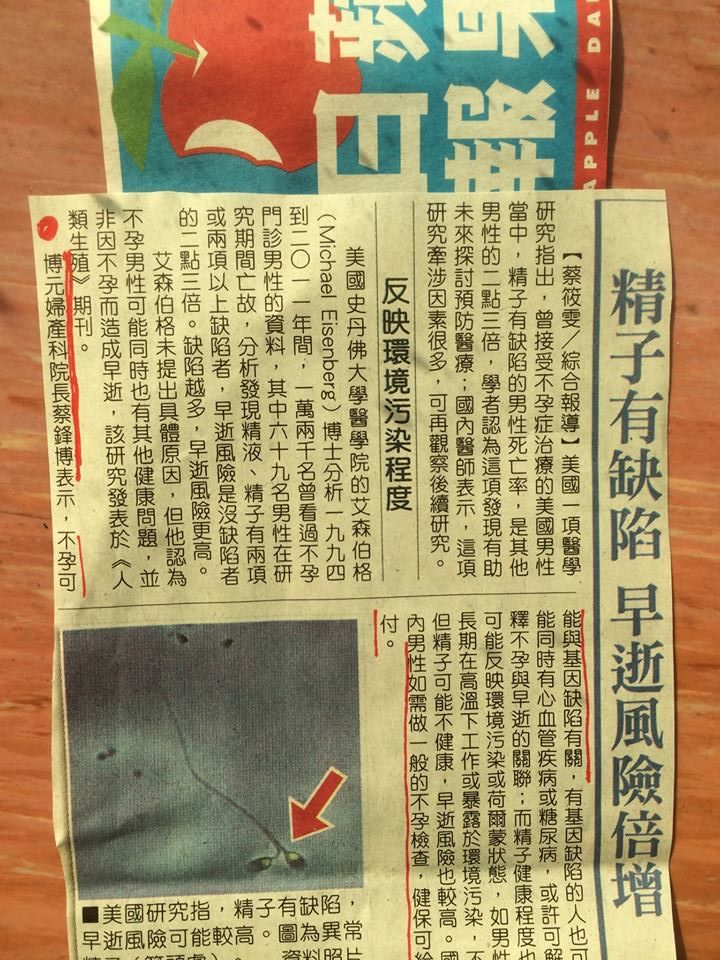 蘋果
日報
APPLE DA
精子有缺陷 早逝風險倍增
【蔡筱雯╱綜合報導】美國一項醫學
研究指出，曾接受不孕症治療的美國男性
當中，精子有缺陷的男性死亡率，是其他
男性的二點三倍，學者認為這項發現有助
未來探討預防醫療；國內醫師表示，這項
研究牽涉因素很多，可再觀察後續研究。
反映環境污染程度
美國史丹佛大學醫學院的艾森伯格
（Michael Eisenberg）博士分析一九九四
到二○一一年間，一萬兩千名曾看過不孕
門診男性的資料，其中六十九名男性在研
究期間亡故，分析發現精液、精子有兩項
或兩項以上缺陷者，早逝風險是沒缺陷者
的二點三倍。缺陷越多，早逝風險更高。
艾森伯格未提出具體原因，但他認為
不孕男性可能同時也有其他健康問題，並
非因不孕而造成早逝，該研究發表於《人
類生殖》期刊。
博元婦產科院長蔡鋒博表示，不孕可
能與基因缺陷有關，有基因缺陷的人也可
能同時有心血管疾病或糖尿病，或許可解
釋不孕與早逝的關聯；而精子健康程度也
可能反映環境污染或荷爾蒙狀態，如男性
長期在高溫下工作或暴露於環境污染，不
但精子可能不健康，早逝風險也較高。國
內男性如需做一般的不孕檢查，健保可給
付。
■美國研究指，精子有缺陷，
早逝風險可能較高。圖為異常